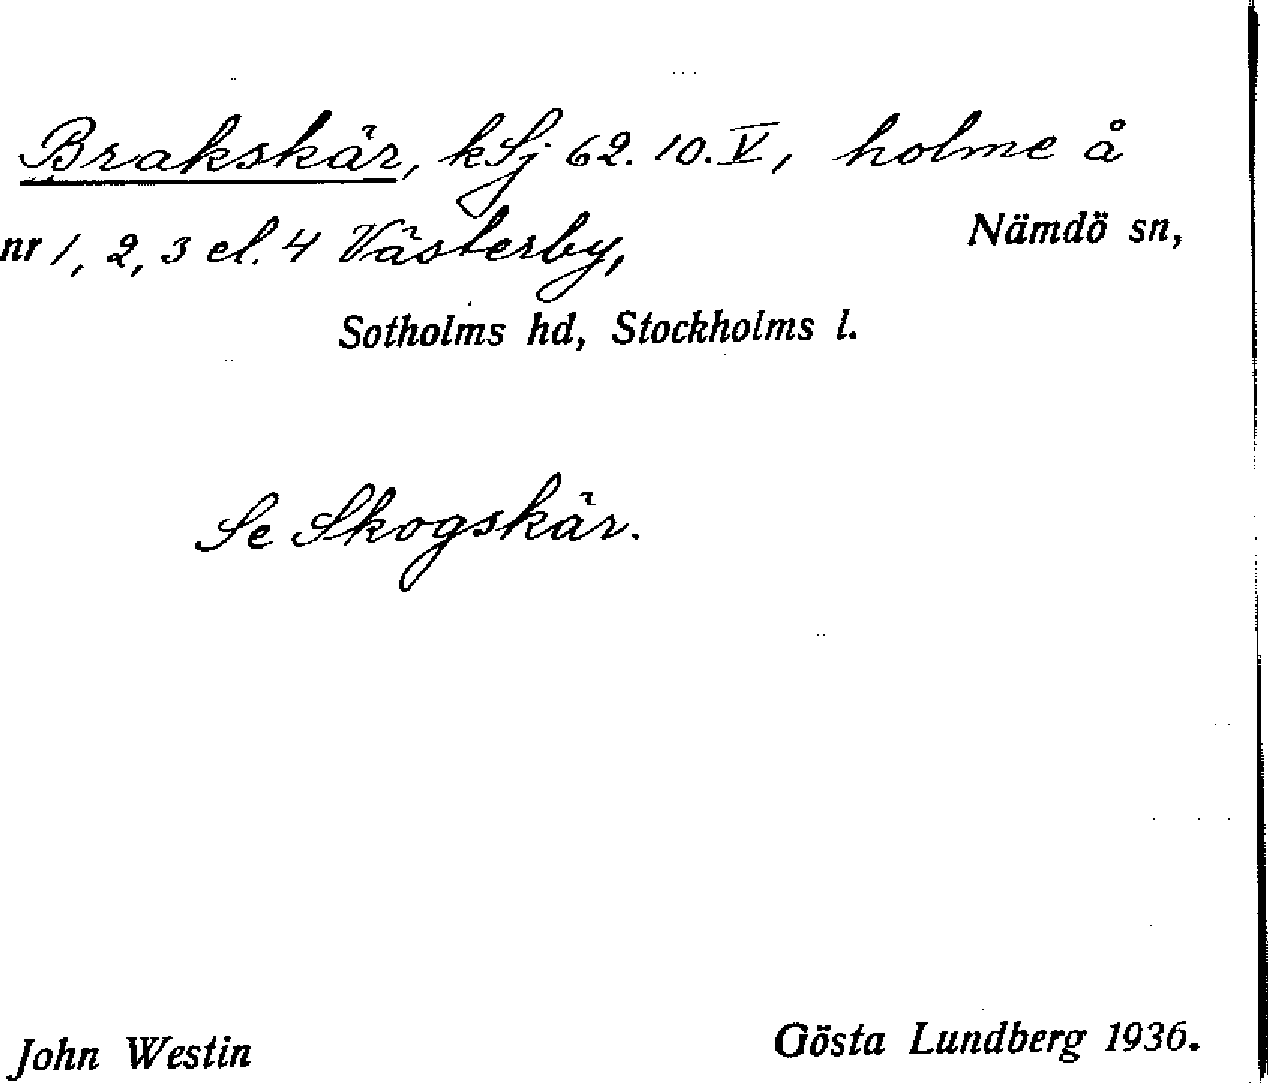 Brakskär, kSj 62. 10. V, holme å
nr 1, 2, 3 el. 4 Västerby, Nämdö sn,
Sotholms hd, Stockholms l.
Se Skogskär.
John Westin Gösta Lundberg 1936.